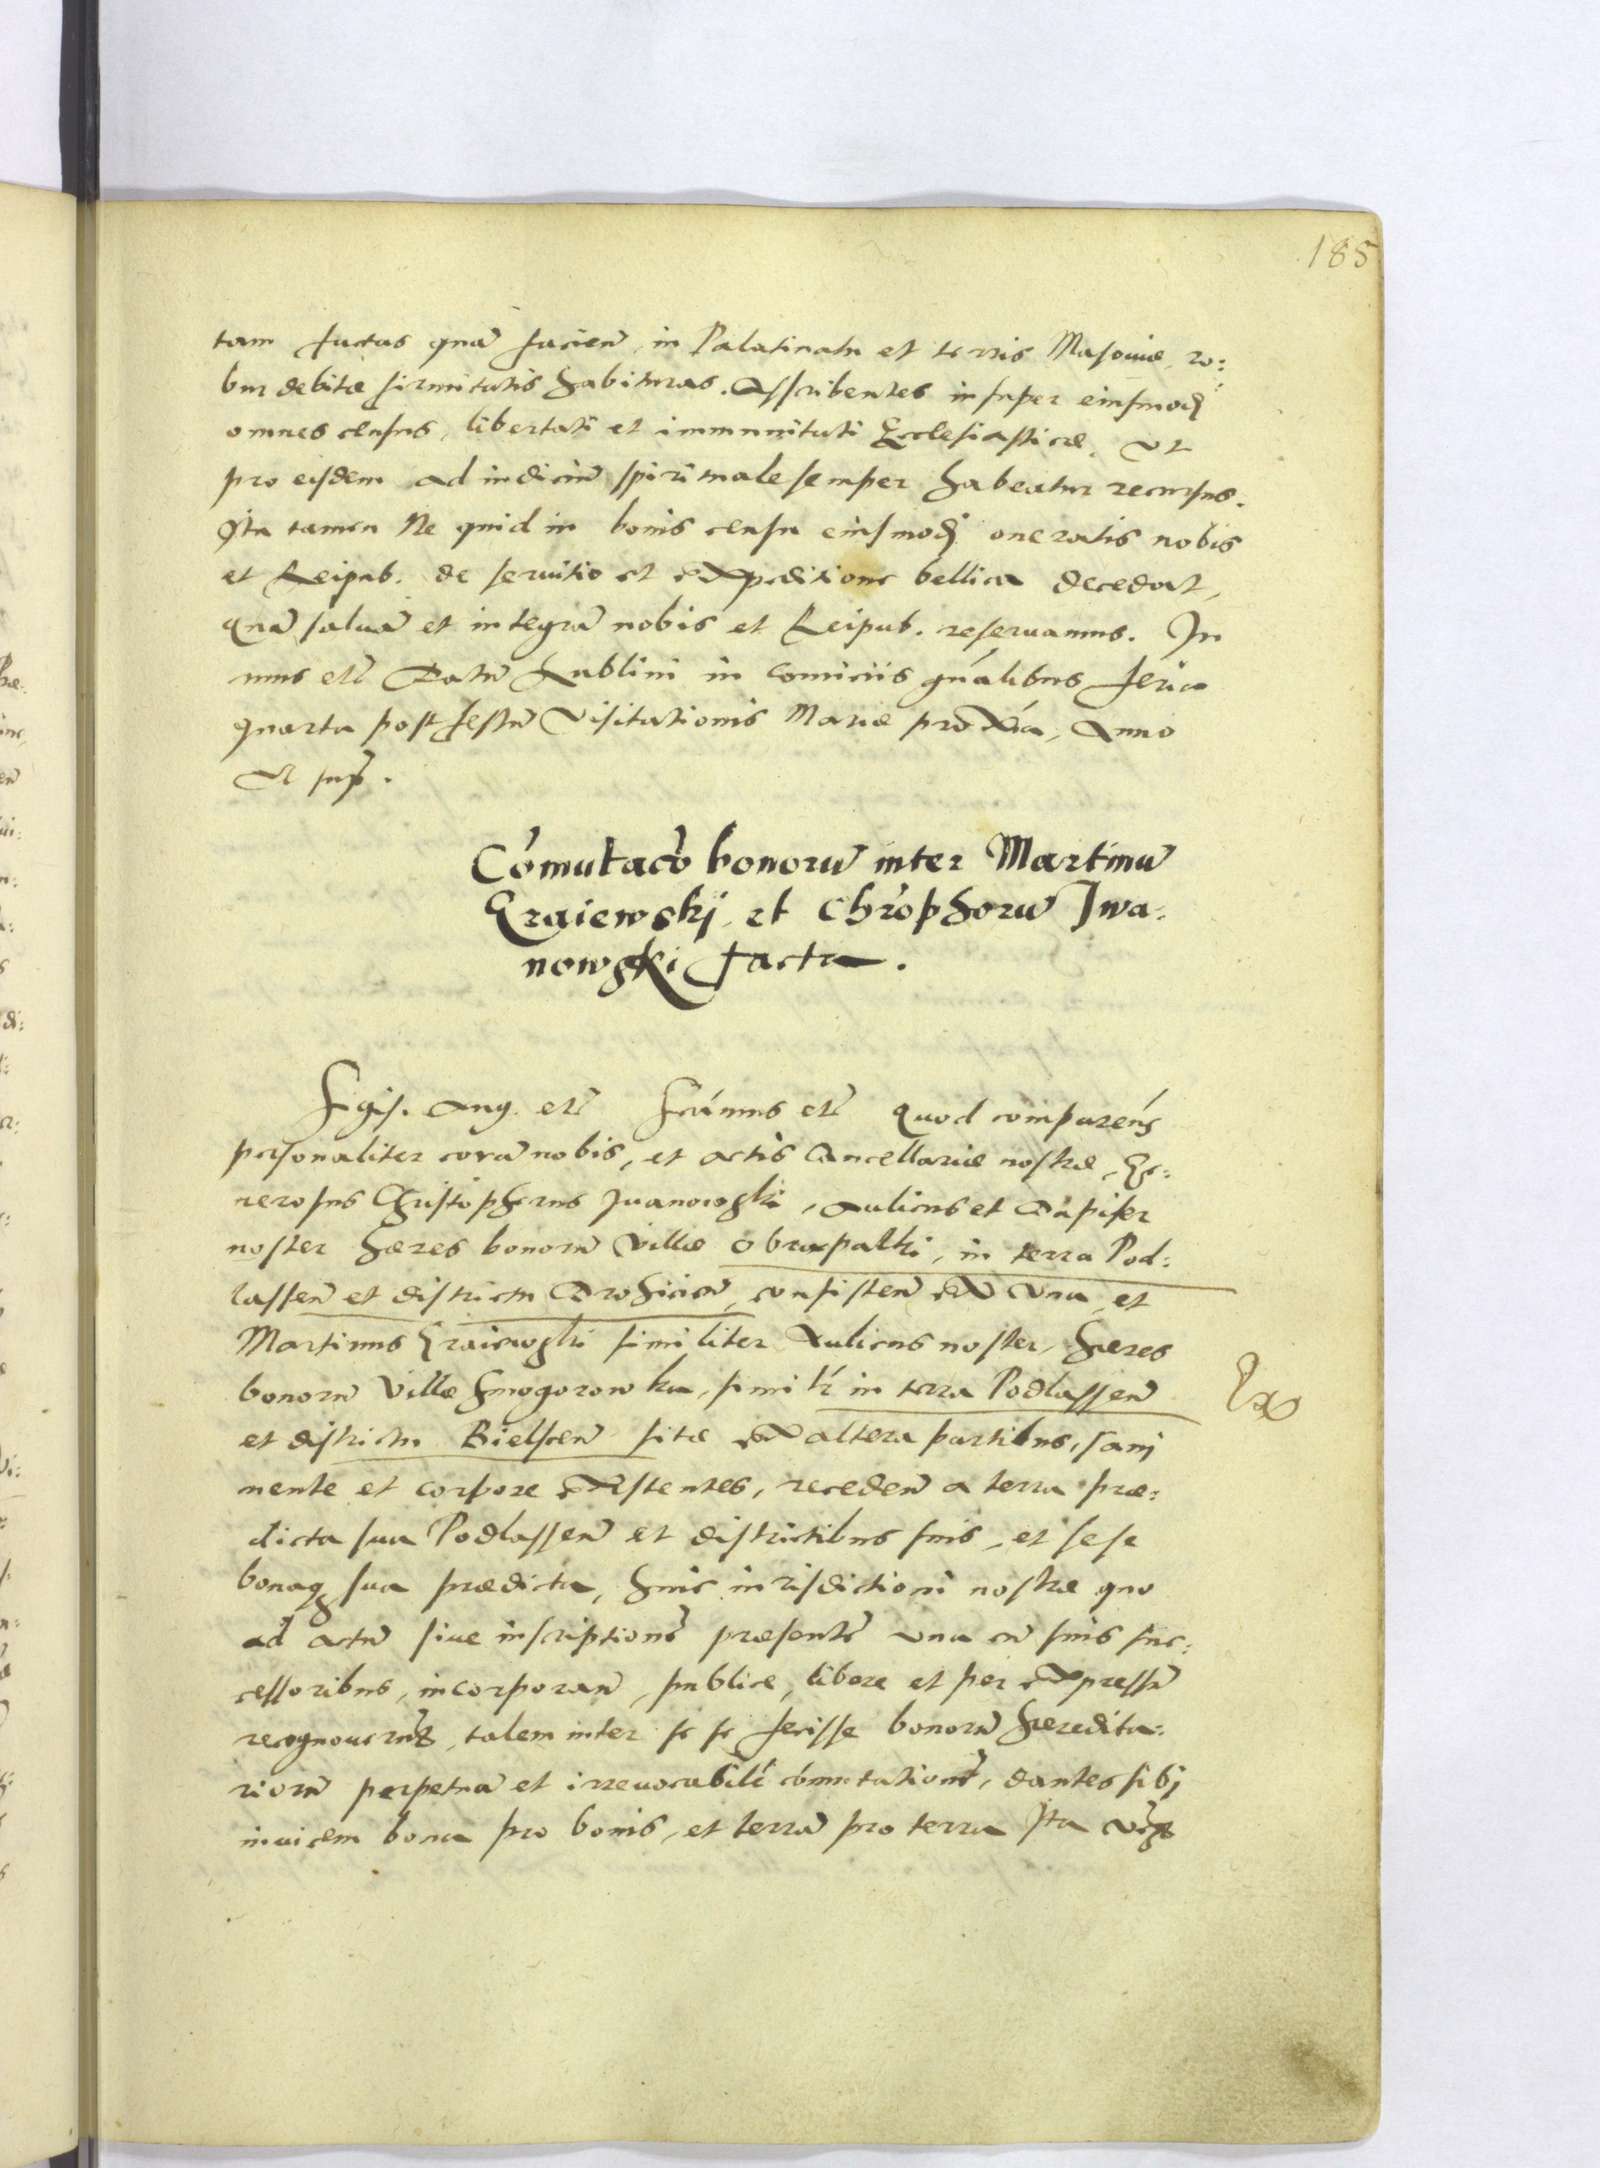 185
tam factas quā facien̄, in Palatinatu et terris Masouiæ, ro:
bur debitæ firmitatis habituras. Asscribentes insuper eiusmodj
omnes census, libertati et immunitati Ecclesiasticæ, vt
pro eisdem ad iudiciū spirituale semper habeatur recursus.
Ita tamen Ne quid in bonis censu eiusmodj oneratis nobis
et Reipub. de seruitio et expeditione bellica decedat,
quā saluā et integrā nobis et Reipub. reseruamus. In
cuius etc̄ Datū Lublini in comiciis gn̄alibus feria
quarta post festū Visitationis Mariæ proxīa, Anno
vt sup̄.
Cōmutac̄o bonorū inter Martinū
Graiewskj et Chrōphorū Iwa:
nowski facta.
Sigis. Aug. etc̄ Scimus etc̄ Quod comparen̄s
personaliter corā nobis, et actis Cancellariæ nostræ, Ge:
nerosus Christopherus Iuanowski, Aulicus et Dapifer
noster hæres bonorū villæ Obrapalki, in terra Pod:
lassen̄ et districtu Drohicien̄, consisten̄ ex vna et
Martinus Graiewski similiter Aulicus noster, hæres
bonorū villæ Smogorowka, similr̄ in terra Podlassen̄
et districtu Bielscen̄ sitæ ex altera partibus, sanj
mente et corpore existentes, receden̄ a terra præ:
dicta sua Podlassen̄ et districtibus suis, et sese
bonaq₃ sua prædicta, huic iurisdictioni nostræ quo
ad actū siue inscriptionē præsentē vna cū suis suc:
cessoribus, incorporan̄, publice, libere et per expressū
recognouerūt, talem inter se se fecisse bonorū hæredita:
riorū perpetuā et irreuocabilē cōmutationē, dantes sibj
inuicem bona pro bonis, et terrā pro terra Ita